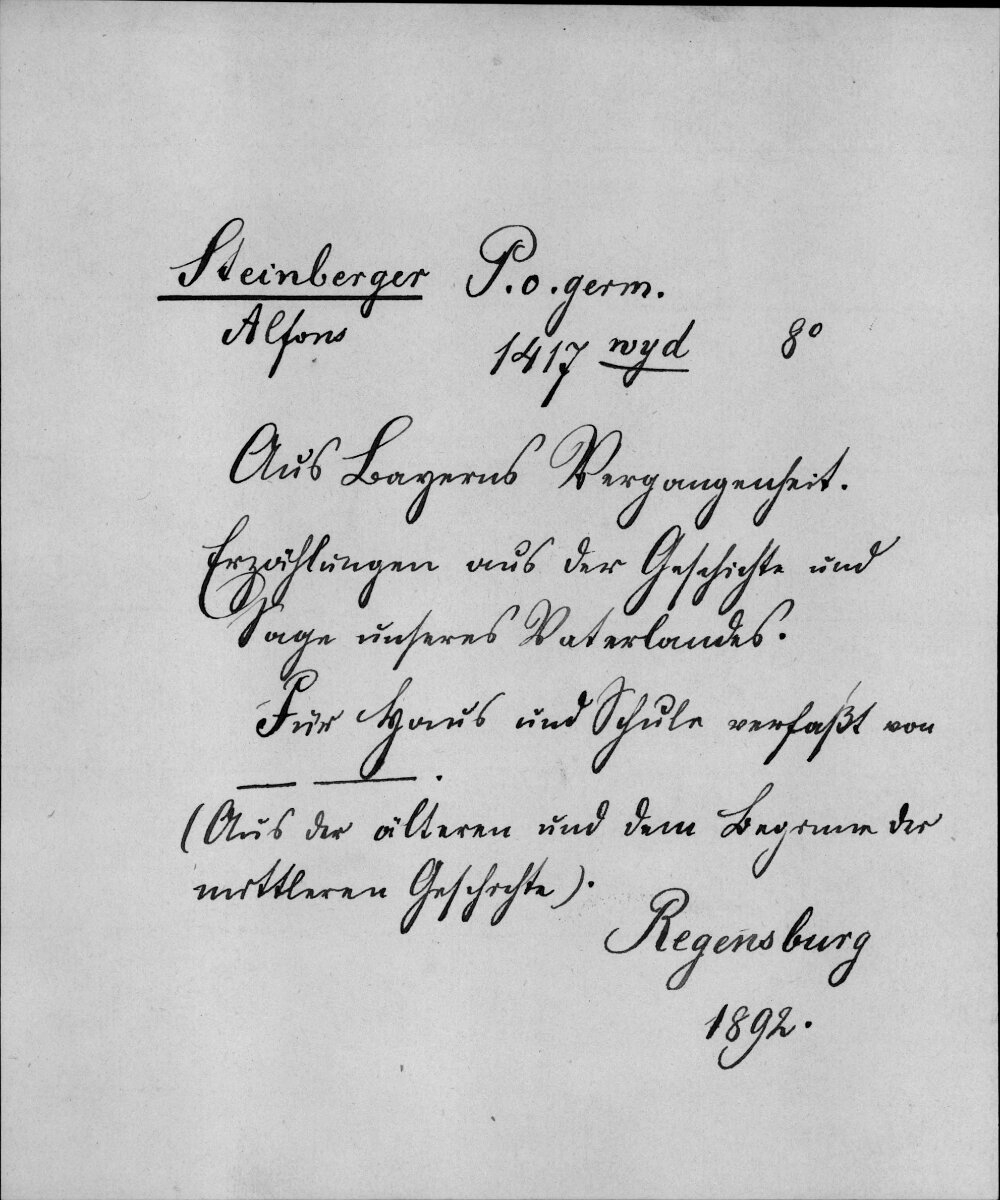 Steinberger P. o. germ.
Alfons 1417 wyd 8°
Aus Bayerns Vergangenheit.
Erzählungen aus der Geschichte und
Sage unseres Vaterlandes.
Für Haus und Schule verfaßt von
— —.
(Aus der älteren und dem Beginne der
mittleren Geschichte).
Regensburg
1892.